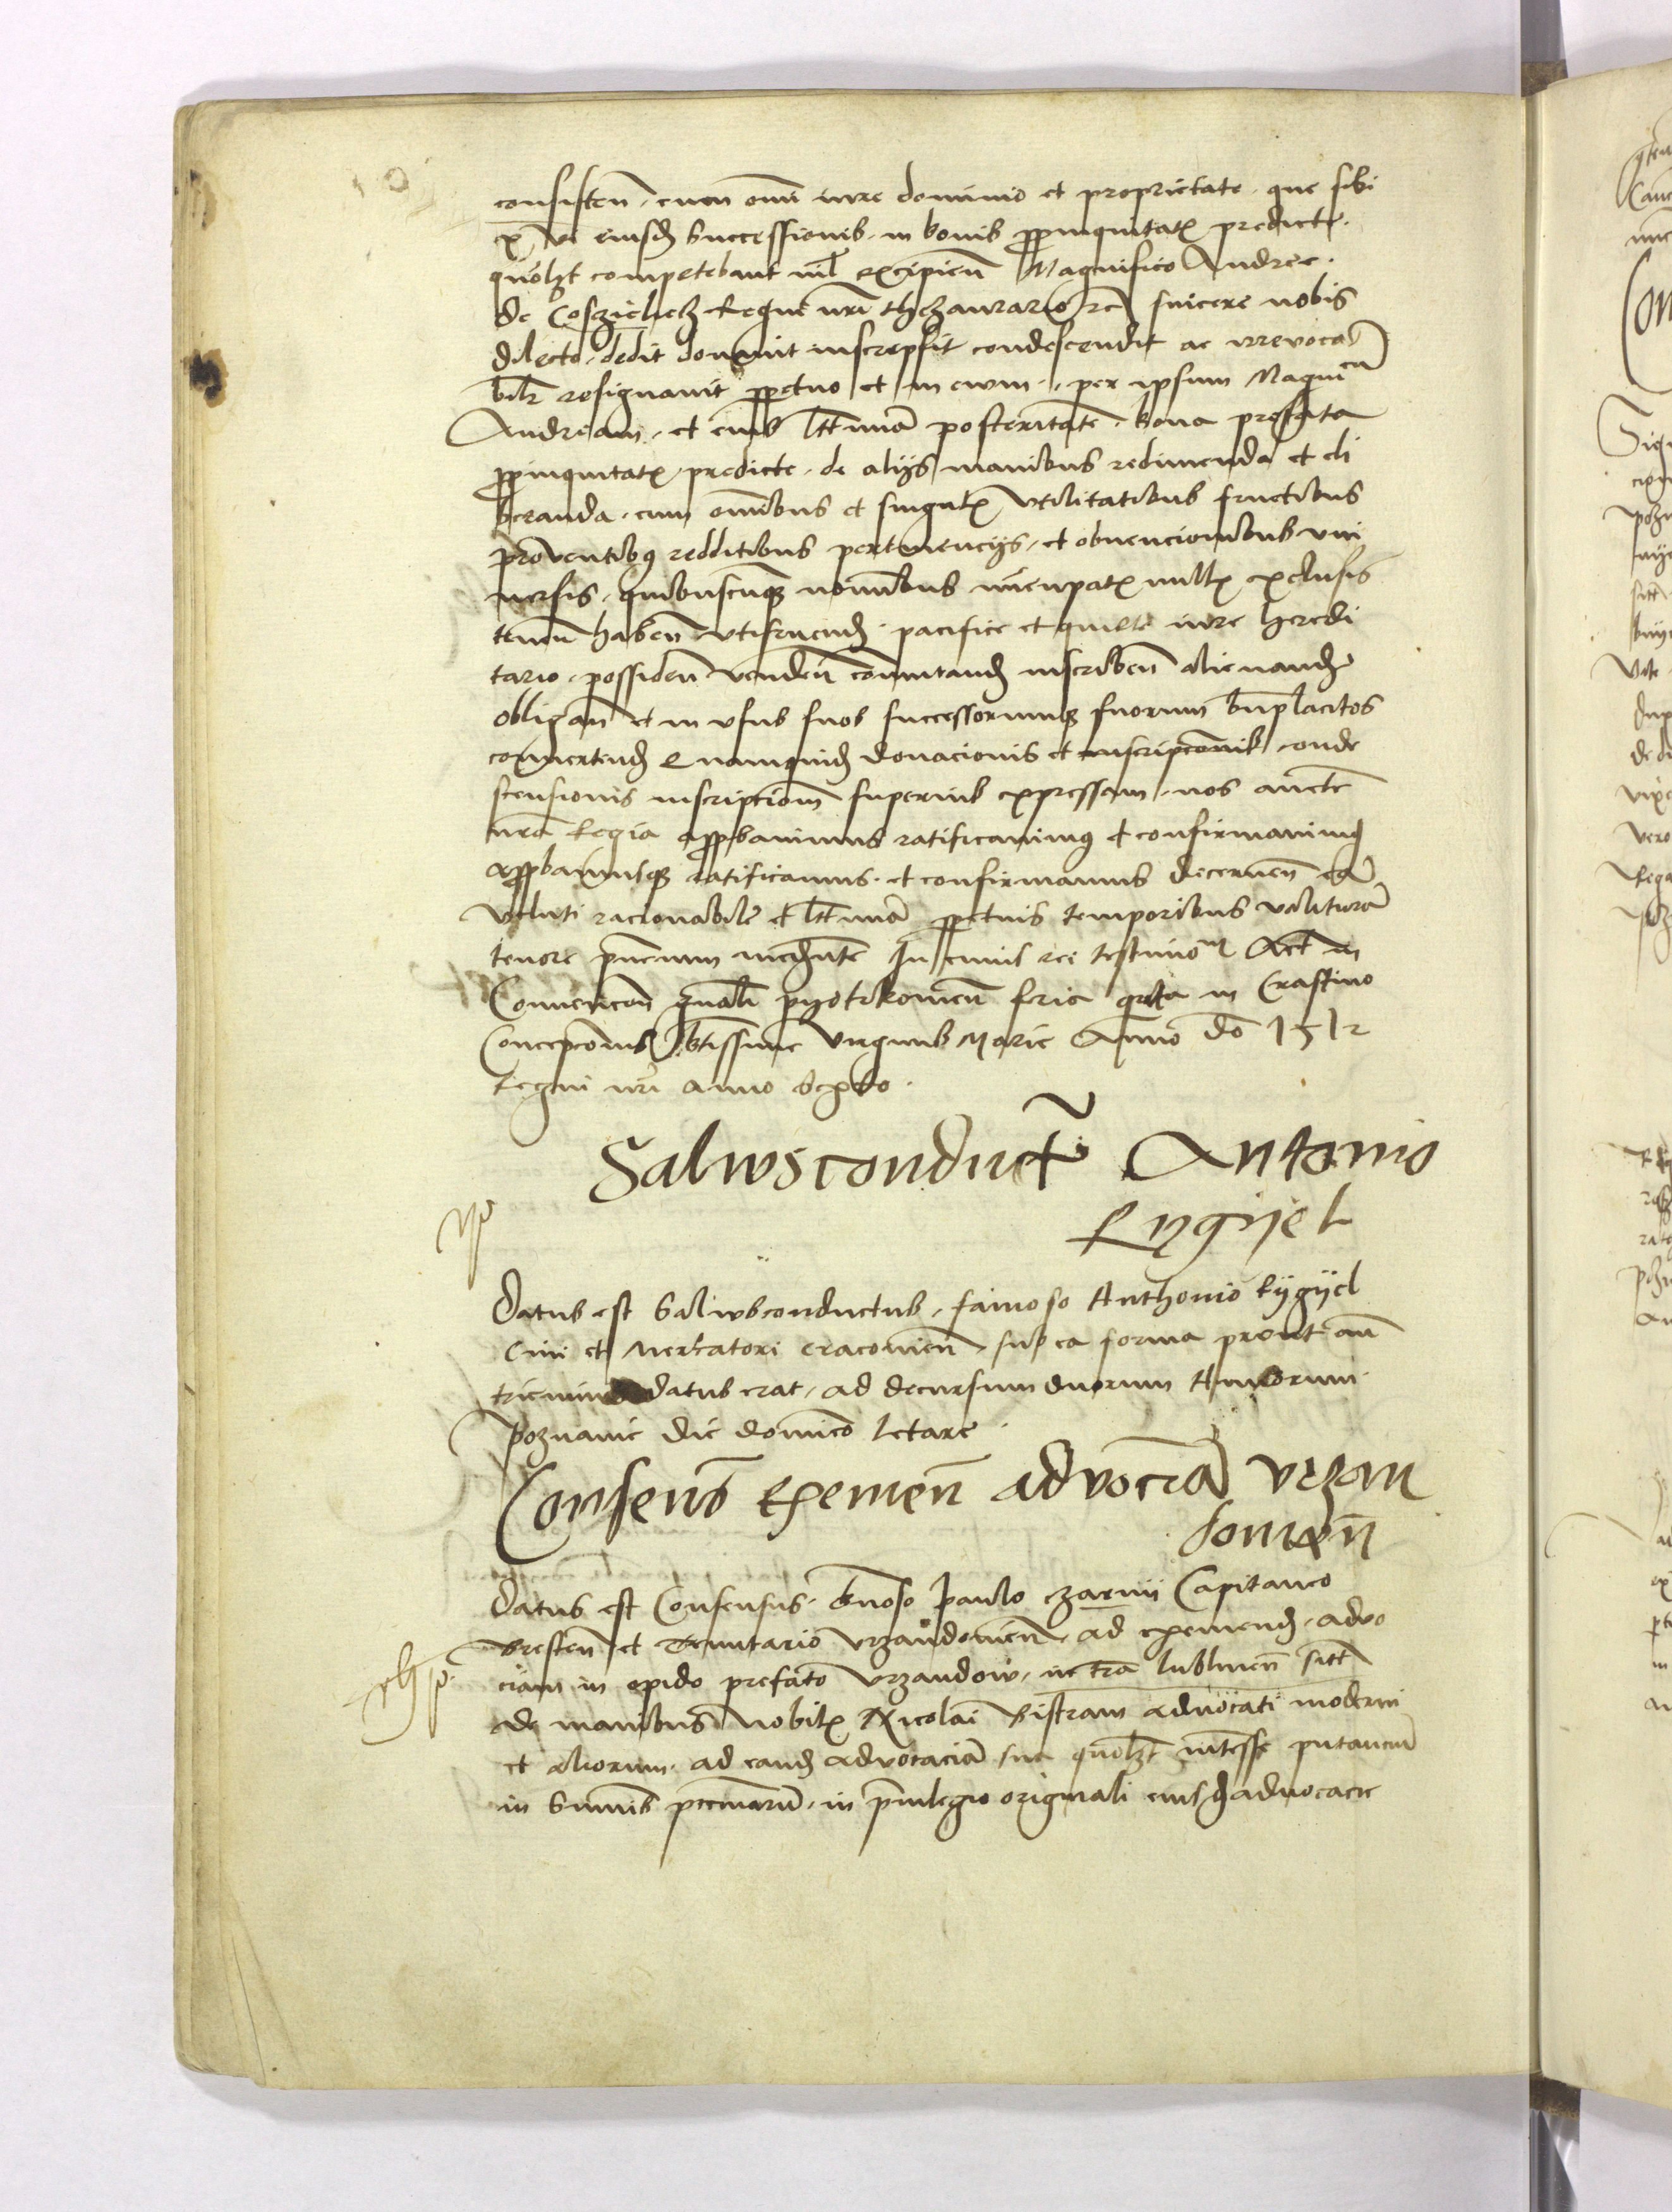 consisten. cum omni iure dominio et proprietate. que sibi
ex vi eiusd successionis. in bonis propinquitatis predicte.
quolzt competebant nil excipien Magnifico Andree.
de Cosczieliecz Regni nri thezaurario etc sincere nobis
dilecto. dedit donavit inscripsit condescendit ac irrevoca
bilr resignavit perpetuo et in evum. per ipsum Magnicum
Andream. et eius lttimam posteritatem. bona prefata
propinquitatis predicte. de alijs manibus redimenda et eli
beranda. cum omnibus et singulis vtilitatibus fructibus
proventibus redditibus pertinencijs. et obuencionibus vni
uersis. quibuscunque nominibus nuncupatis nullis exclusis
tenen haben vtifruend. pacifice et quiete iure heredi
tario. possiden venden commutand inscriben alienand
obligan et in vsus suos successorumque suorum bnplacitos
convertend Quamquid donacionis et inscripconis conde
scensionis inscriptiom superius expressam. nos aucte
nra Regia approbavimus ratificavimus et confirmavimus
approbamusque ratificamus. et confirmamus decernen eam
veluti racionabile et lttimam perpetuis temporibus valituram
tenore pncium mediante In cuius rei testimom Act in
Convencon gnali pyotrkovien feria qrta in Crastino
Concepconis btissime virginis Marie Anno do 1512
Regni nri anno sexto.
Salwsconduct Antonio
Rygyel
Datus est Salwsconductus. famoso Anthonio Rygyel
Civi et Mercatori cracovien sub ea forma prout an
triennium datus erat. ad decursum duorum Annorum.
Poznanie die domico letare
Consens exemen advocia vrzan
dowien
Datus est Consensus. gnoso Paulo czarny Capitaneo
Bresten et Tenutario vrzandowien ad exemend. advo
ciam in opido prefato vrzandow. in tra lublinen sitt
de manibus nobilis Nicolai Bistram advocati moderni
et aliorum. ad eand advocaciam sua quolzt interesse putancium
in Summis pecuniarum. in privilegio originali eiusd advocacie